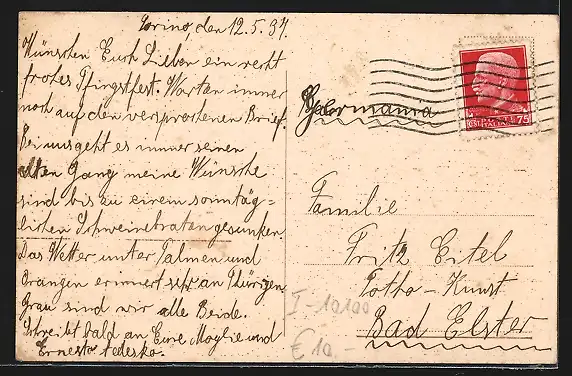 Torino, den 12.5.37.
Wünschen Euch Lieben ein recht
frohes Pfingstfest. Warten immer
noch auf den versprochenen Brief.
Bei uns geht es immer seinen
alten Gang meine Wünsche
sind bis zu einem sonntäg=
lichen Schweinebraten gesunken.
Das Wetter unter Palmen und
Orangen erinnert sehr an Thüringen
Grau sind wir alle Beide.
Schreibt bald an Eure Moglie und
Ernesto Tedesko.
Germania
POSTE ITALIANE 75
Familie
Fritz Ertel
Potho - Kunst
Bad Elster
I-10100
€ 10